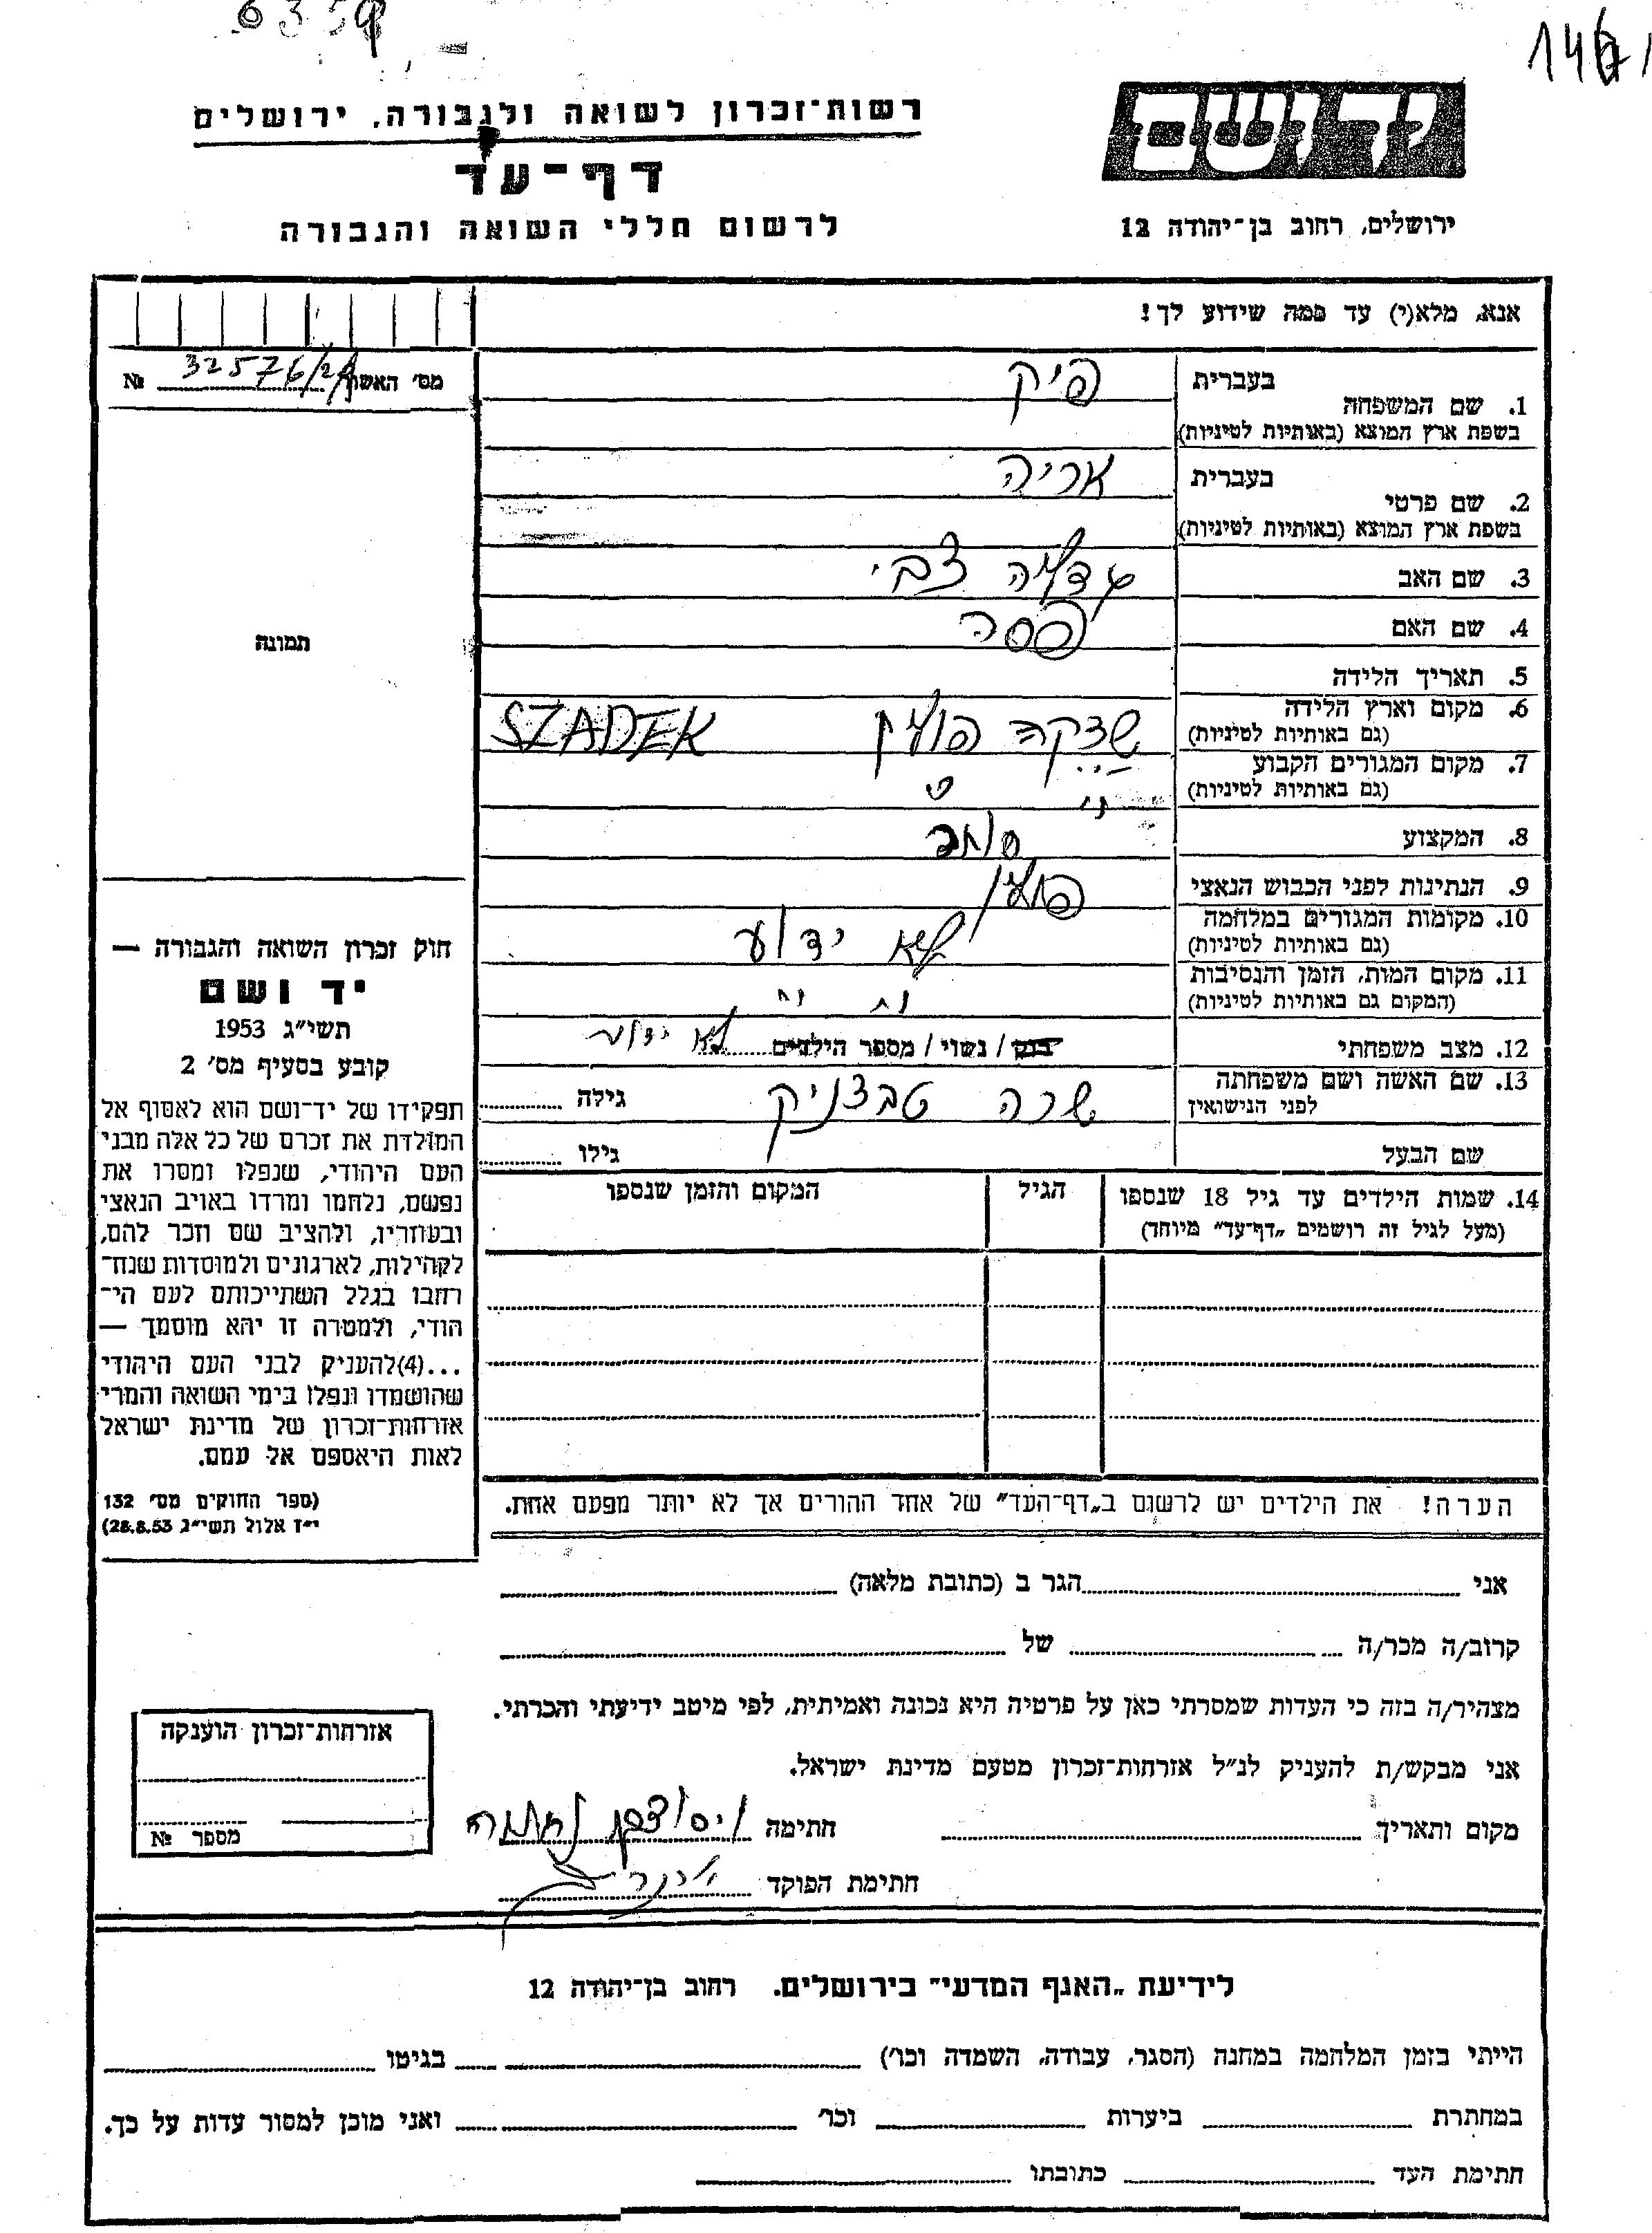 6359
146
רשות־זכרון לשואה ולגבורה, ירושלים
יד ושם
דף־עד
לרשום חללי השואה והגבורה
ירושלים, רחוב בן־יהודה 12
אנא, מלא(י) עד כמה שידוע לך!
מס׳ האשה 32576/2 №
בעברית פיק
1. שם המשפחה
בשפת ארץ המוצא (באותיות לטיניות)
בעברית אריה
2. שם פרטי
בשפת ארץ המוצא (באותיות לטיניות)
3. שם האב צבי
4. שם האם פסה
5. תאריך הלידה
6. מקום וארץ הלידה שדקה פולין SZADEK
(גם באותיות לטיניות)
7. מקום המגורים הקבוע
(גם באותיות לטיניות)
8. המקצוע סוחר
9. הנתינות לפני הכבוש הנאצי פולין
10. מקומות המגורים במלחמה לא ידוע
(גם באותיות לטיניות)
11. מקום המות, הזמן והנסיבות
(המקום גם באותיות לטיניות)
12. מצב משפחתי רווק / נשוי / מספר הילדים לא ידוע
13. שם האשה ושם משפחתה שרה טבצניק גילה
לפני הנישואין
שם הבעל גילו
14. שמות הילדים עד גיל 18 שנספו הגיל המקום והזמן שנספו
(מעל לגיל זה רושמים „דף־עד״ מיוחד)
הערה! את הילדים יש לרשום ב„דף־העד״ של אחד ההורים אך לא יותר מפעם אחת.
תמונה
חוק זכרון השואה והגבורה —
יד ושם
תשי״ג 1953
קובע בסעיף מס׳ 2
תפקידו של יד־ושם הוא לאסוף אל
המולדת את זכרם של כל אלה מבני
העם היהודי, שנפלו ומסרו את
נפשם, נלחמו ומרדו באויב הנאצי
ובעוזריו, ולהציב שם וזכר להם,
לקהילות, לארגונים ולמוסדות שנח־
רבו בגלל השתייכותם לעם הי־
הודי, ולמטרה זו יהא מוסמך —
...(4)להעניק לבני העם היהודי
שהושמדו ונפלו בימי השואה והמרי
אזרחות־זכרון של מדינת ישראל
לאות היאספם אל עמם.
(ספר החוקים מס׳ 132
י״ז אלול תשי״ג 28.8.53)
אני הגר ב (כתובת מלאה)
קרוב/ה מכר/ה של
מצהיר/ה בזה כי העדות שמסרתי כאן על פרטיה היא נכונה ואמיתית, לפי מיטב ידיעתי והכרתי.
אני מבקש/ת להעניק לנ״ל אזרחות־זכרון מטעם מדינת ישראל.
מקום ותאריך חתימה
חתימת הפוקד
אזרחות־זכרון הוענקה
מספר №
לידיעת „האגף המדעי״ בירושלים. רחוב בן־יהודה 12
הייתי בזמן המלחמה במחנה (הסגר, עבודה, השמדה וכו׳) בגיטו
במחתרת ביערות וכו׳ ואני מוכן למסור עדות על כך.
חתימת העד כתובתו